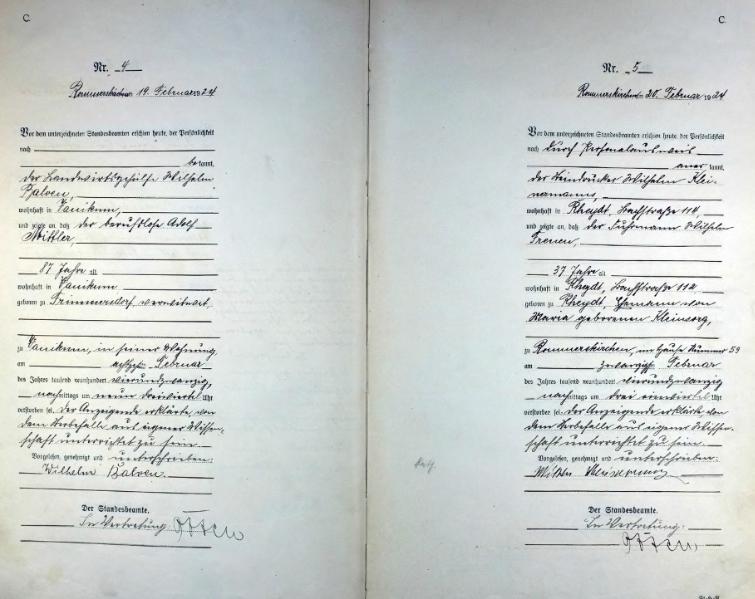 C.
Nr. 4
Rommerskirchen 19. Februar 1924
Vor dem unterzeichneten Standesbeamten erschien heute, der Persönlichkeit
nach
bekannt,
der Landwirtsgehülfe Wilhelm
Balven,
wohnhaft in Vanikum,
und zeigte an, daß der berufslose Adolf
87 Jahre alt
wohnhaft in Vanikum
geboren zu verwitwet,
zu Vanikum, in seiner Wohnung,
am Februar
des Jahres tausend neunhundert vierundzwanzig,
nachmittags um neun dreiviertel Uhr
verstorben sei. der Anzeigende erklärte, von
dem Sterbefalle aus eigener Wissen-
schaft unterrichtet zu sein.
Vorgelesen, genehmigt und unterschrieben:
Wilhelm Balven.
Der Standesbeamte.
In Vertretung:
C.
Nr. 5
Rommerskirchen 20. Februar 1924
Vor dem unterzeichneten Standesbeamten erschien heute, der Persönlichkeit
nach durch Personalausweis
anerkannt,
der Steindrucker Wilhelm Klei-
wohnhaft in Rheydt, Bachstraße 112,
und zeigte an, daß der Fuhrmann Wilhelm
37 Jahre alt
wohnhaft in Rheydt, Bachstraße 112
geboren zu Rheydt, Ehemann von
Maria geborenen
zu Rommerskirchen, im Hause Nummer 59
am zwanzigst Februar
des Jahres tausend neunhundert vierundzwanzig
nachmittags um drei einviertel Uhr
verstorben sei. der Anzeigende erklärte, von
dem Sterbefalle aus eigener Wissen-
schaft unterrichtet zu sein.
Vorgelesen, genehmigt und unterschrieben:
Der Standesbeamte.
In Vertretung: